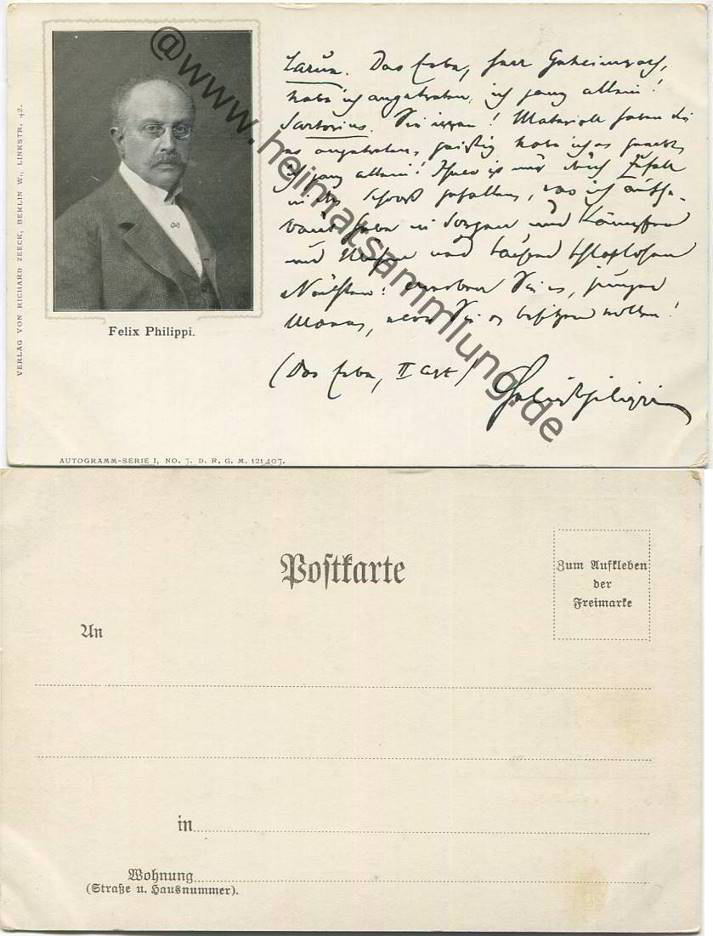 VERLAG VON RICHARD ZEECK, BERLIN W., LINKSTR. 42.
@www.heimatsammlung.de
Felix Philippi.
Larun. Das Erbe, Herr Geheimrath,
habe ich angetreten, ich ganz allein!
Sartorius. Sie irren! Materiell haben Sie
es angetreten, geistig habe ich es
ich ganz allein! Ihnen ist nur durch Zufall
in den Schooß gefallen, was ich
haben in Sorgen und Kämpfen
und und tausend schlaflosen
Nächten: erwerben Sie es, junger
Mann, wenn Sie es besitzen wollen!
(Das Erbe, II Act)
Felix Philippi
AUTOGRAMM-SERIE I, NO. 7. D. R. G. M. 121407.
Postkarte
Zum Aufkleben
der
Freimarke
An
in
Wohnung
(Straße u. Hausnummer).